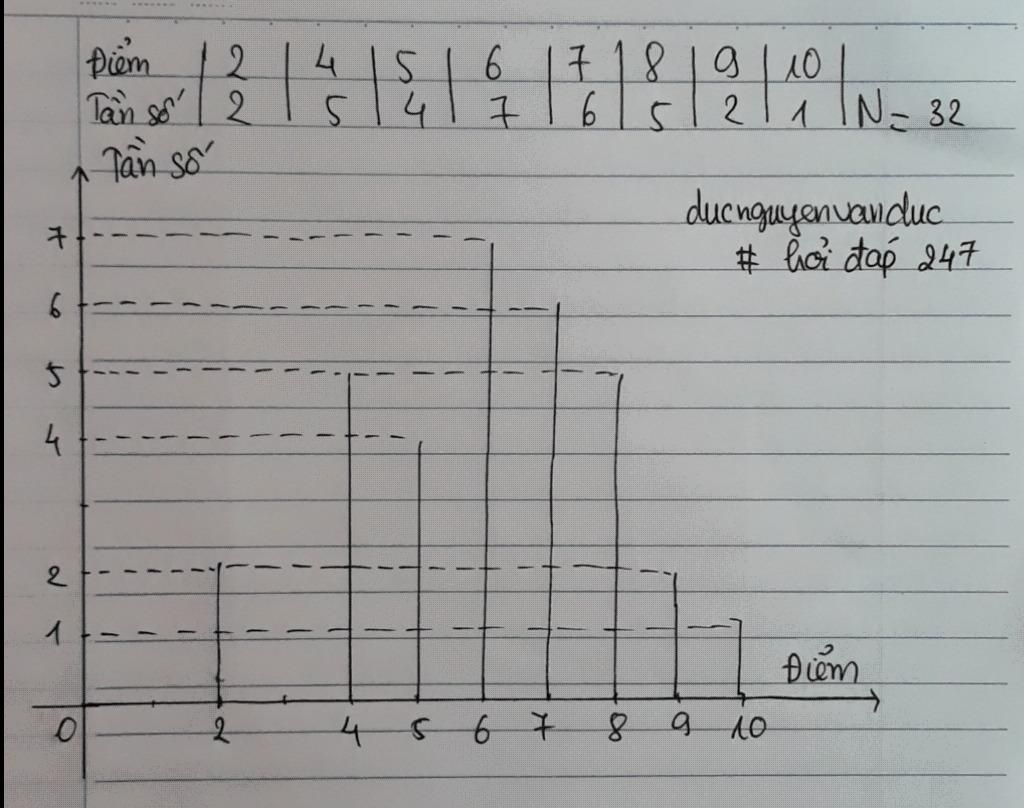 Điểm | 2 | 4 | 5 | 6 | 7 | 8 | 9 | 10 |
Tần số | 2 | 5 | 4 | 7 | 6 | 5 | 2 | 1 | N = 32
Tần số
ducnguyenvanduc
# hỏi đáp 247
7
6
5
4
2
1
Điểm
0 2 4 5 6 7 8 9 10